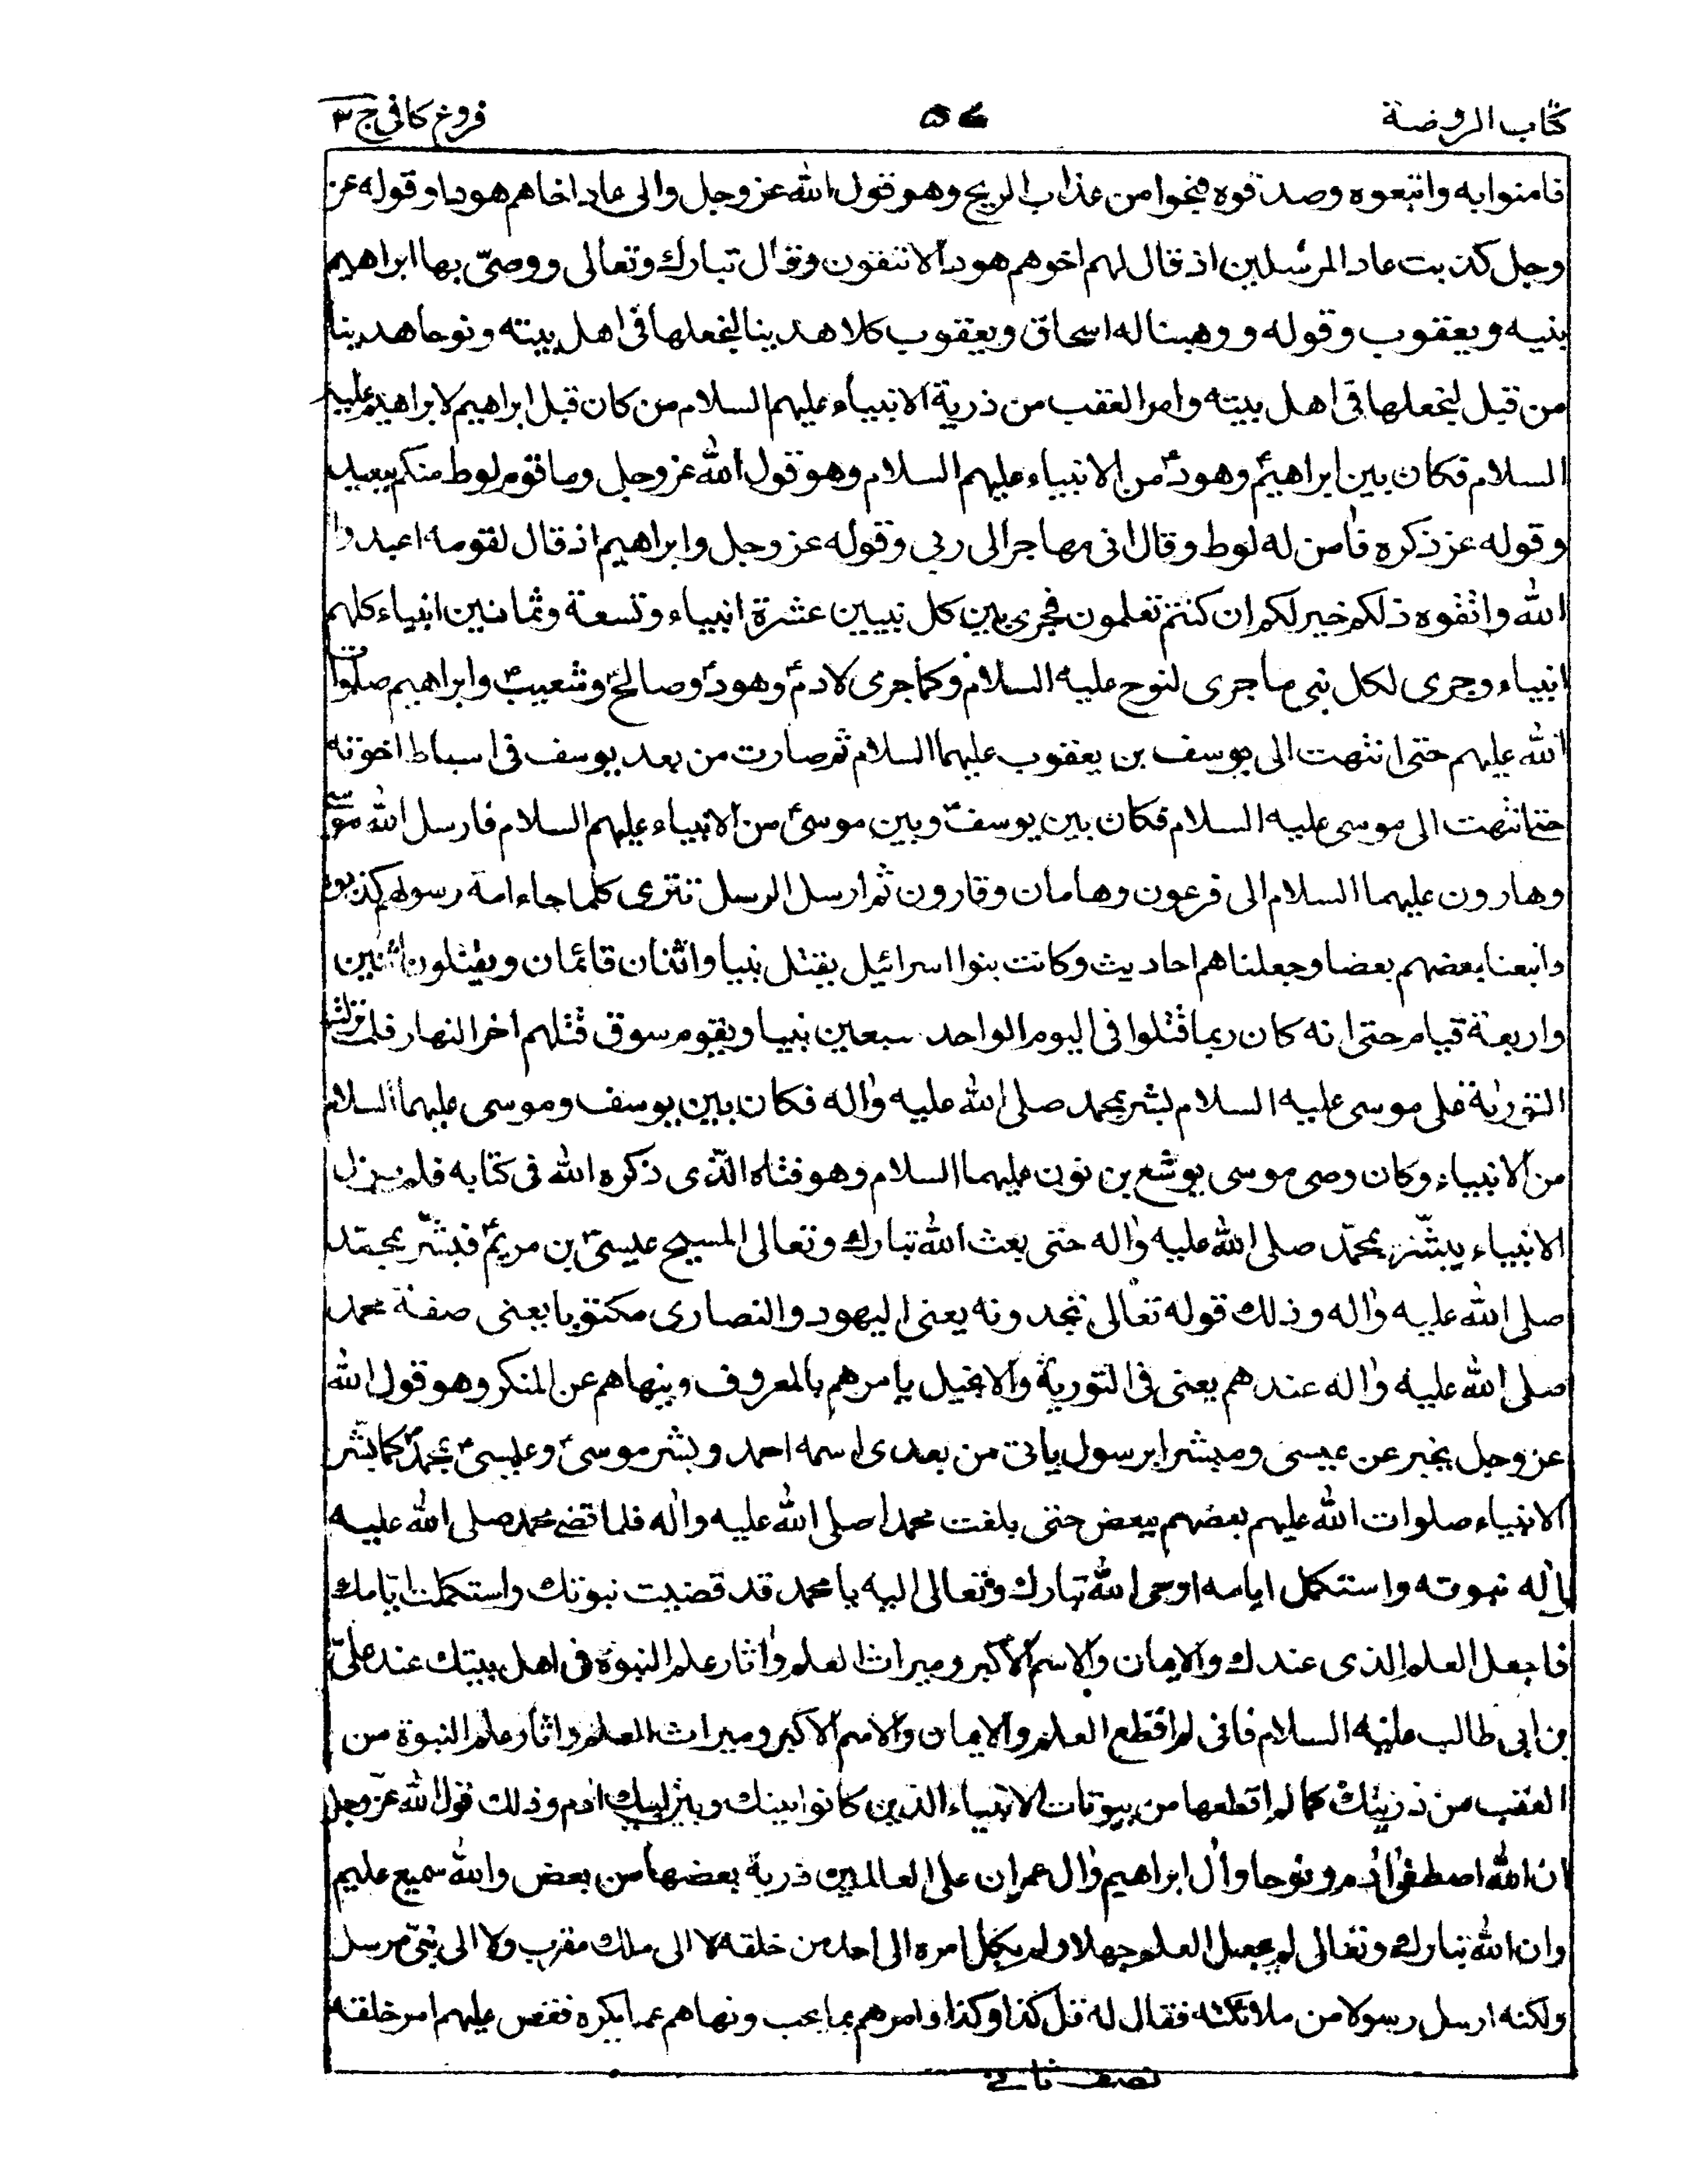 كتاب الروضة ٥٤ فروع كافى ج ٣
فامنوا به واتبعوه وصدقوه فنجوا من عذاب الريح وهو قول الله عز وجل والى عاد اخاهم هودا وقوله عز
وجل كذبت عاد المرسلين اذ قال لهم اخوهم هود الا تتقون وقال تبارك وتعالى ووصىّ بها ابراهيم
بنيه ويعقوب وقوله ووهبنا له اسحاق ويعقوب كلا هدينا لنجعلها فى اهل بيته ونوحا هدينا
من قبل لنجعلها فى اهل بيته وامر العقب من ذرية الانبياء عليهم السلام من كان قبل ابراهيم لابراهيم عليه
السلام فكان بين ابراهيمؑ وهودؑ من الانبياء عليهم السلام وهو قول الله عز وجل وما قوم لوط منكم ببعيد
وقوله عز ذكره فاٰمن له لوط وقال انى مهاجر الى ربى وقوله عز وجل وابراهيم اذ قال لقومه اعبدوا
الله واتقوه ذلكم خير لكم ان كنتم تعلمون فجرى بين كل نبيين عشرة انبياء وتسعة وثمانين انبياء كلهم
انبياء وجرى لكل نبى ما جرى لنوح عليه السلام وكما جرى لادمؑ وهودؑ وصالحؑ وشعيبؑ وابراهيم صلوات
الله عليهم حتى انتهت الى يوسف بن يعقوب عليهما السلام ثم صارت من بعد يوسف فى اسباط اخوته
حتى انتهت الى موسى عليه السلام فكان بين يوسفؑ وبين موسىؑ من الانبياء عليهم السلام فارسل الله موسى
وهارون عليهما السلام الى فرعون وهامان وقارون ثم ارسل الرسل تترى كلما جاء امة رسولهم كذبوه
واتبعنا بعضهم بعضا وجعلناهم احاديث وكانت بنوا اسرائيل يقتل نبيا واثنان قائمان ويقتلون اثنين
واربعة قيام حتى انه كان ربما قتلوا فى اليوم الواحد سبعين نبيا ويقوم سوق قتلهم اخر النهار فلما نزلت
التورٰية على موسى عليه السلام بشر بمحمد صلى الله عليه واٰله فكان بين يوسف وموسى عليهما السلام
من الانبياء وكان وصى موسى يوشع بن نون عليهما السلام وهو فتاه الّذى ذكره الله فى كتابه فلم يزل
الانبياء يبشّر بمحمّد صلى الله عليه واٰله حتى بعث الله تبارك وتعالى المسيح عيسىؑ بن مريمؑ فبشّر بمحمّد
صلى الله عليه واٰله وذلك قوله تعالى تجدونه يعنى اليهود والنصارى مكتوبا يعنى صفة محمد
صلى الله عليه واٰله عندهم يعنى فى التورية والانجيل يامرهم بالمعروف وينهاهم عن المنكر وهو قول الله
عز وجل يخبر عن عيسى ومبشرا برسول ياتى من بعدى اسمه احمد وبشر موسىؑ وعيسىؑ بمحمدؐ كما بشّر
الانبياء صلوات الله عليهم بعضهم ببعض حتى بلغت محمدا صلى الله عليه واٰله فلما قضى محمد صلى الله عليه
واٰله نبوته واستكمل ايامه اوحى الله تبارك وتعالى اليه يا محمد قد قضيت نبوتك واستكملت ايّامك
فاجعل العلم الذى عندك والايمان والاسم الاكبر وميراث العلم واٰثار علم النبوة فى اهل بيتك عند علىّ
بن ابى طالب عليه السلام فانى لم اقطع العلم والايمان والاسم الاكبر وميراث العلم واثار علم النبوة من
العقب من ذريتك كما لم اقطعها من بيوتات الانبياء الذين كانوا بينك وبين ابيك اٰدم وذلك قول الله عزّ وجل
ان الله اصطفى اٰدم ونوحا واٰل ابراهيم واٰل عمران على العالمين ذرية بعضها من بعض والله سميع عليم
وان الله تبارك وتعالى لم يجعل العلم جهلا ولم يكل امره الى احد من خلقه لا الى ملك مقرب ولا الى نبىّ مرسل
ولكنه ارسل رسولا من ملائكته فقال له قل كذا وكذا وامرهم بما يحب ونهاهم عما يكره فقص عليهم امر خلقه
نصف ثانى